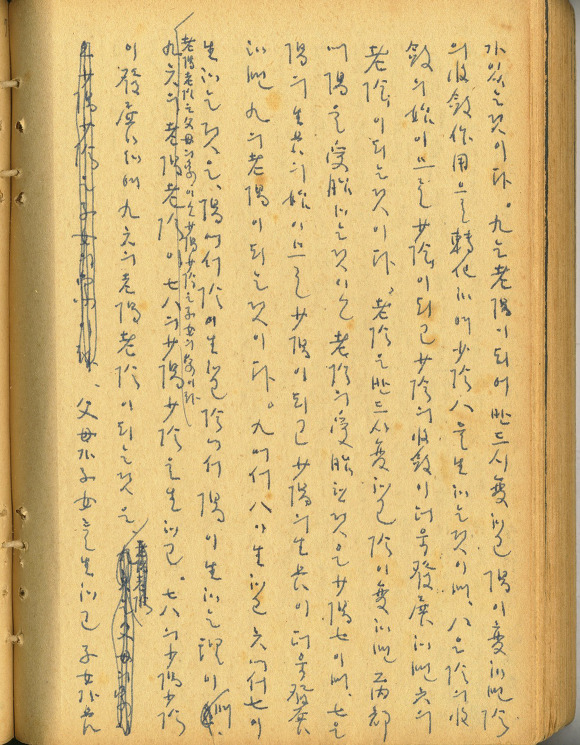 가 있는 것이다。九는 老陽이 되어 반드시 變하고 陽이 變하면 陰
의 收斂作用으로 轉化하여 少陰八을 生하는 것이며、八은 陰의 收
斂의 始이므로 少陰이 되고 少陰의 收斂이 더욱 發展하면 六의
老陰이 되는 것이다、老陰은 반드시 變하고 陰이 變하면 內部
에 陽을 受胎하는 것이오 老陰의 受胎한 것은 少陽七이며、七은
陽의 生長의 始이므로 少陽이 되고 少陽의 生長이 더욱 發展
하면 九의 老陽이 되는 것이다。九에서 八이 生하고 六에서 七이
生하는 것은、陽에서 陰이 生하고 陰에서 陽이 生하는 理이며、
老陽老陰은 父母의 象이오 少陽少陰은 子女의 象이라
九六의 老陽老陰이 七八의 少陽少陰을 生하고、七八의 少陽少陰
이 發展하여 九六의 老陽老陰이 되는 것은
老陽老陰
、父母가 子女를 生하고 子女가 長